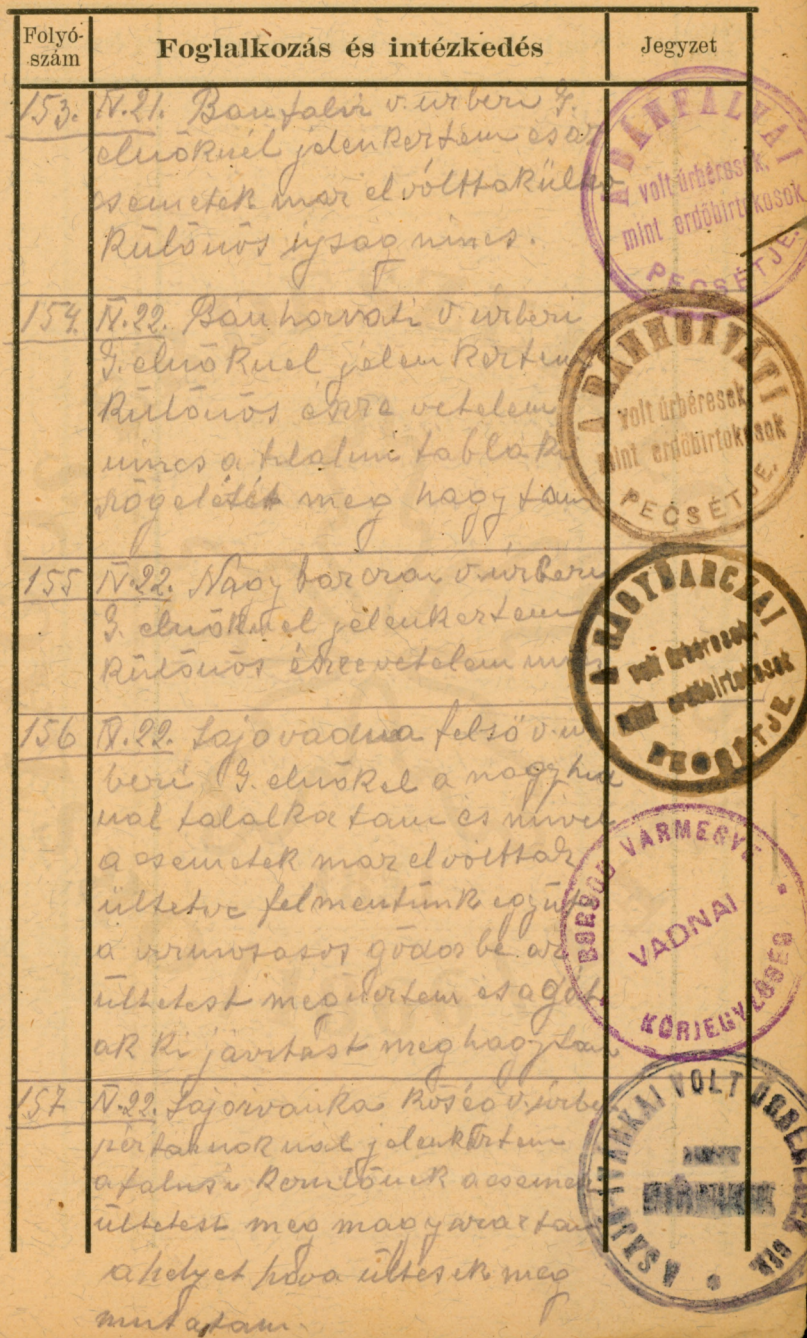 Folyó-
szám
Foglalkozás és intézkedés
Jegyzet
153. IV.21. Banfalvi v. urberi G.
elnöknél jelenkertem es az
csemetek mar el vólttak
Külonös ujsag nincs.
A BÁNFALVAI
volt úrbéresek,
mint erdőbirtokosok
PECSÉTJE.
154. IV.22. Bánhorvati v. urberi
G. elnöknel jelen kertem
Külonös észre vetelem
nincs a tilalmi tablak
rögeletét meg hagytam
A BÁNHORVÁTI
volt úrbéresek
mint erdőbirtokosok
PECSÉTJE.
155 IV.22. Nagy barcai v. urberi
G. elnöknel jelenkertem
Külonös észrevetelem nincs
A NAGYBARCZAI
volt úrbéresek,
mint erdőbirtokosok
PECSÉTJE
156 IV.22. Sajovadna felső v. ur
beri G. elnökel a nagy
nal talalkatam es mivel
a csemetek mar el vólttak
ültetve felmentünk együtt
a gödosbe az
ültetest megnertem es a
ak ki javitast meghagytam
BORSOD VÁRMEGYE
VADNAI
KÖRJEGYZŐSÉG
157 IV.22. Sajoivanka v. urberi
nal jelenkertem
a falusi kerulönek a csemete
ültetest meg magyaraztam
a helyet hova ültesék meg
mutatam.
A SAJÓIVÁNKAI VOLT ÚRBÉRESEK